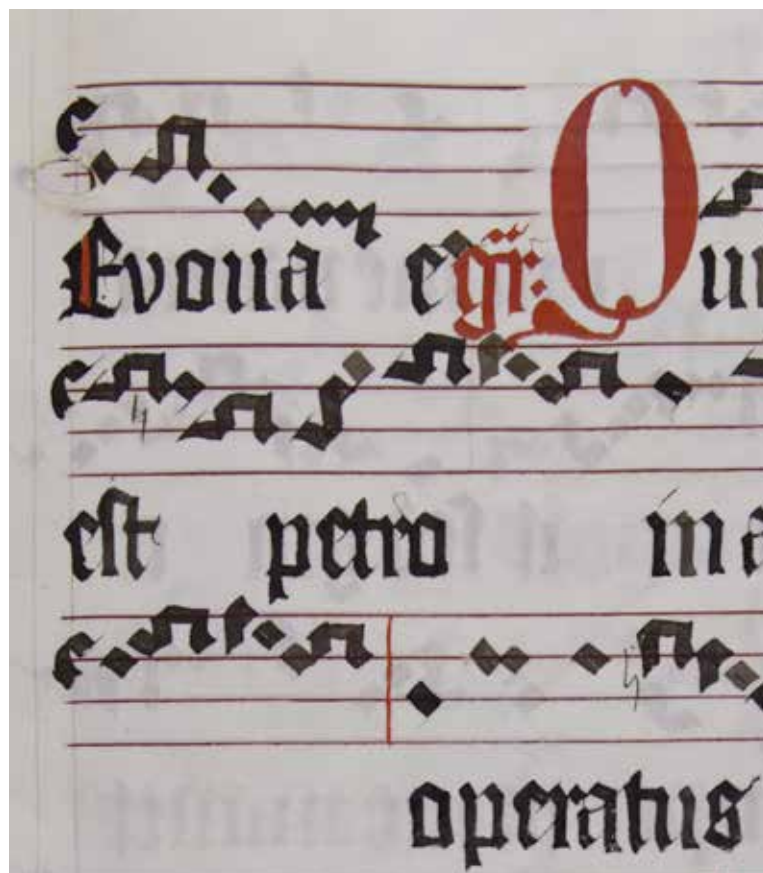 Evoua e gr: Qu
eſt petro in a
operatus